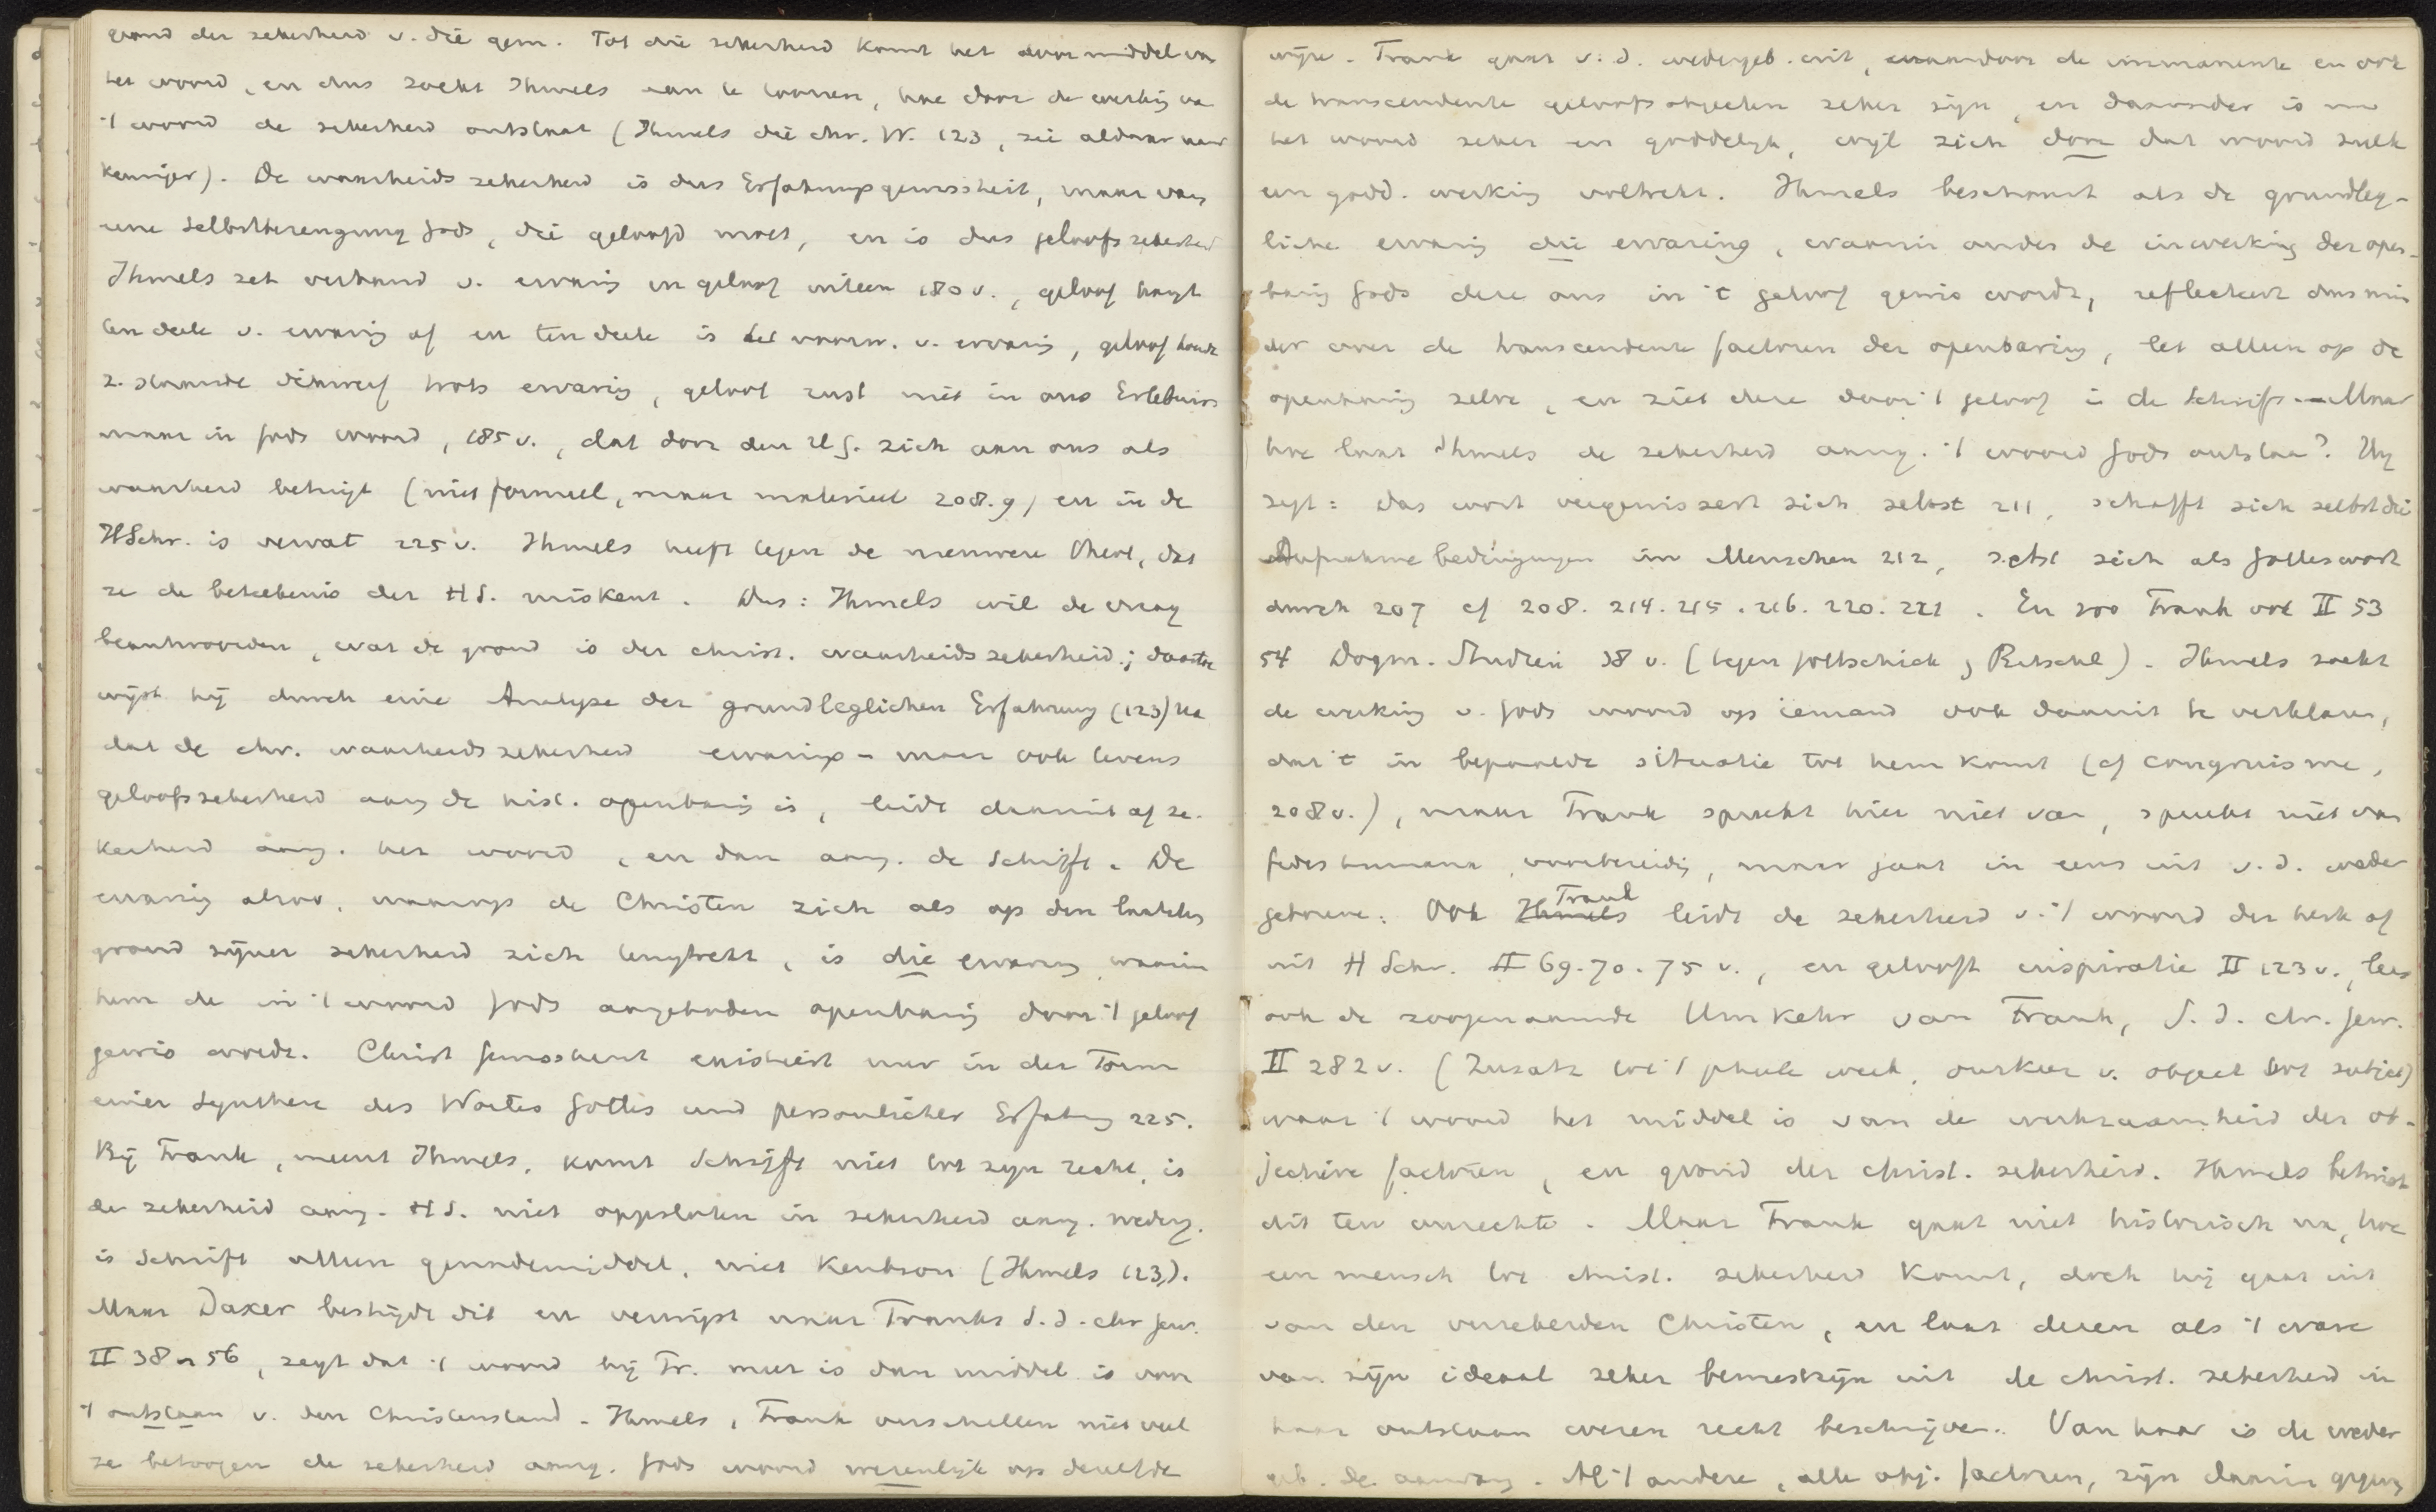 grond der zekerheid v. die gem. Tot die zekerheid komt het door middel van
het woord, en dus zoekt Ihmels aan te toonen, hoe door de werking van
't woord de zekerheid ontstaat (Ihmels die chr. W. 123, zie aldaar
). De waarheidszekerheid is dus Erfahrungsgewissheit, maar van
eene Selbstbezeugung Gods, die geloofd moet, en is dus geloofszekerheid
Ihmels zet verband v. ervaring en geloof uiteen 180 v., geloof hangt
ten deele v. ervaring af en ten deele is het voorw. v. ervaring, geloof houdt
z. staande dikwerf trots ervaring, geloof rust niet in ons Erlebnis
maar in Gods woord, 185 v., dat door den H.G. zich aan ons als
waarheid betuigt (niet formeel, maar materieel 208.9) en in de
HSchr. is vervat 225 v. Ihmels heeft tegen de nieuwere theol., dat
ze de beteekenis der H S. miskent. Dus: Ihmels wil de vraag
beantwoorden, wat de grond is der christ. waarheidszekerheid; daartoe
wijst hij durch eine Analyse der grundleglichen Erfahrung (123)
dat de chr. waarheidszekerheid ervarings- maar ook tevens
geloofszekerheid aang de hist. openbaring is, leidt daaruit af ze-
kerheid aang. het woord, en dan aang. de Schrift. De
ervaring alzoo, waarop de Christen zich als op den laatsten
grond zijner zekerheid zich terugtrekt, is die ervaring waarin
hem de in 't woord Gods aangeboden openbaring door 't geloof
gewis wordt. Christ Gewissheit existiert nur in der Form
einer Synthese des Wortes Gottes und persönlicher Erfahrung 225.
Bij Frank, meent Ihmels, komt Schrift niet tot zijn recht, is
de zekerheid aang. H S. niet opgesloten in zekerheid aang. wederg.
is Schrift alleen genademiddel, niet Kenbron (Ihmels 123).
Maar Daxer bestrijdt dit en verwijst naar Franks S. d. chr Gew.
II 38 n 56, zegt dat 't woord bij Fr. meer is dan middel is van
't ontstaan v. den Christenstand. Ihmels, Frank verschillen niet veel
ze betoogen de zekerheid aang. Gods woord wezenlijk op dezelfde
wijze. Frank gaat v. d. wedergeb. uit, waardoor de immanente en ook
de transcendente geloofsobjecten zeker zijn, en daaronder is nu
het woord zeker en goddelijk, wijl zich door dat woord zulk
een godd. werking voltrekt. Ihmels beschouwt als de grundleg-
liche ervaring die ervaring, waarin onder de inwerking der open-
baring Gods deze ons in 't geloof gewis wordt, reflecteert dus min
der over de transcendente factoren der openbaring, let alleen op de
openbaring zelve, en ziet deze door 't geloof in de Schrift. - Maar
hoe laat Ihmels de zekerheid aang. 't woord Gods ontstaan? Hij
zegt: das Wort vergewissert sich selbst 211, schafft sich selbst die
Aufnahmebedingungen im Menschen 212, setzt sich als Gotteswort
durch 207 cf 208. 214. 215. 216. 220. 221. En zoo Frank ook II 53
54 Dogm. Studien 38 v. (tegen Gottschick, Ritschl). Ihmels zoekt
de werking v. Gods woord op iemand ook daaruit te verklaren,
dat 't in bepaalde situatie tot hem komt (cf congruisme,
208 v.), maar Frank spreekt hier niet van, spreekt niet van
fides humana, voorbereiding, maar gaat in eens uit v. d. weder
geboorte. Ook Frank leidt de zekerheid v. 't woord der kerk af
uit H Schr. II 69. 70. 75 v., en gelooft inspiratie II 123 v., lees
ook de zoogenaamde Umkehr van Frank, S. d. chr. Gew.
II 282 v. (Zusatz tot 't geheele werk, omkeer v. object tot subject)
waar 't woord het middel is van de werkzaamheid der ob-
jectieve factoren, en grond der christ. zekerheid. Ihmels betwist
dit ten onrechte. Maar Frank gaat niet historisch na, hoe
een mensch tot christ. zekerheid komt, doch hij gaat uit
van den verzekerden Christen, en laat dezen als 't ware
van zijn ideaal zeker bewustzijn uit de christ. zekerheid in
haar ontstaan weren recht beschrijven. Van haar is de weder
geb. de aanvang. Al 't andere, alle obj. factoren, zijn daarin gegeven